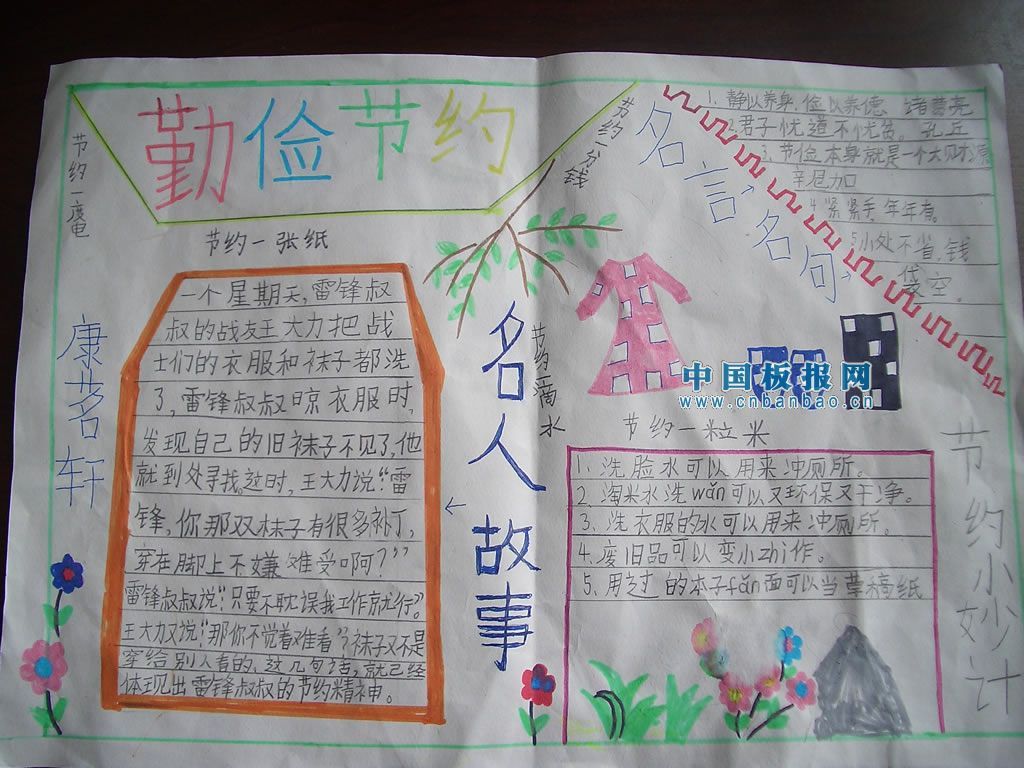 勤俭节约
节约一度电
节约一分钱
节约一张纸
康茗轩
一个星期天,雷锋叔
叔的战友王大力把战
士们的衣服和袜子都洗
了,雷锋叔叔晾衣服时,
发现自己的旧袜子不见了,他
就到处寻找。这时,王大力说:“雷
锋,你那双袜子有很多补丁,
穿在脚上不嫌难受啊?”
雷锋叔叔说:“只要不耽误我工作就行。”
王大力又说:“那你不觉着难看?”袜子又不是
穿给别人看的,这几句话,就已经
体现出雷锋叔叔的节约精神。
名人故事
节约一滴水
名言名句
1. 静以养身,俭以养德、诸葛亮
2君子忧道不忧贫。孔丘
3、节俭本身就是一个大财源
辛尼加
4.紧紧手年年有。
5小处不省,钱
袋空。
中国板报网
www.cnbanbao.cn
节约一粒米
1、洗脸水可以用来冲厕所。
2、淘米水洗wǎn可以又环保又干净。
3、洗衣服的水可以用来冲厕所。
4.废旧品可以变小zhi作。
5、用过的本子fǎn面可以当草稿纸
节约小妙计